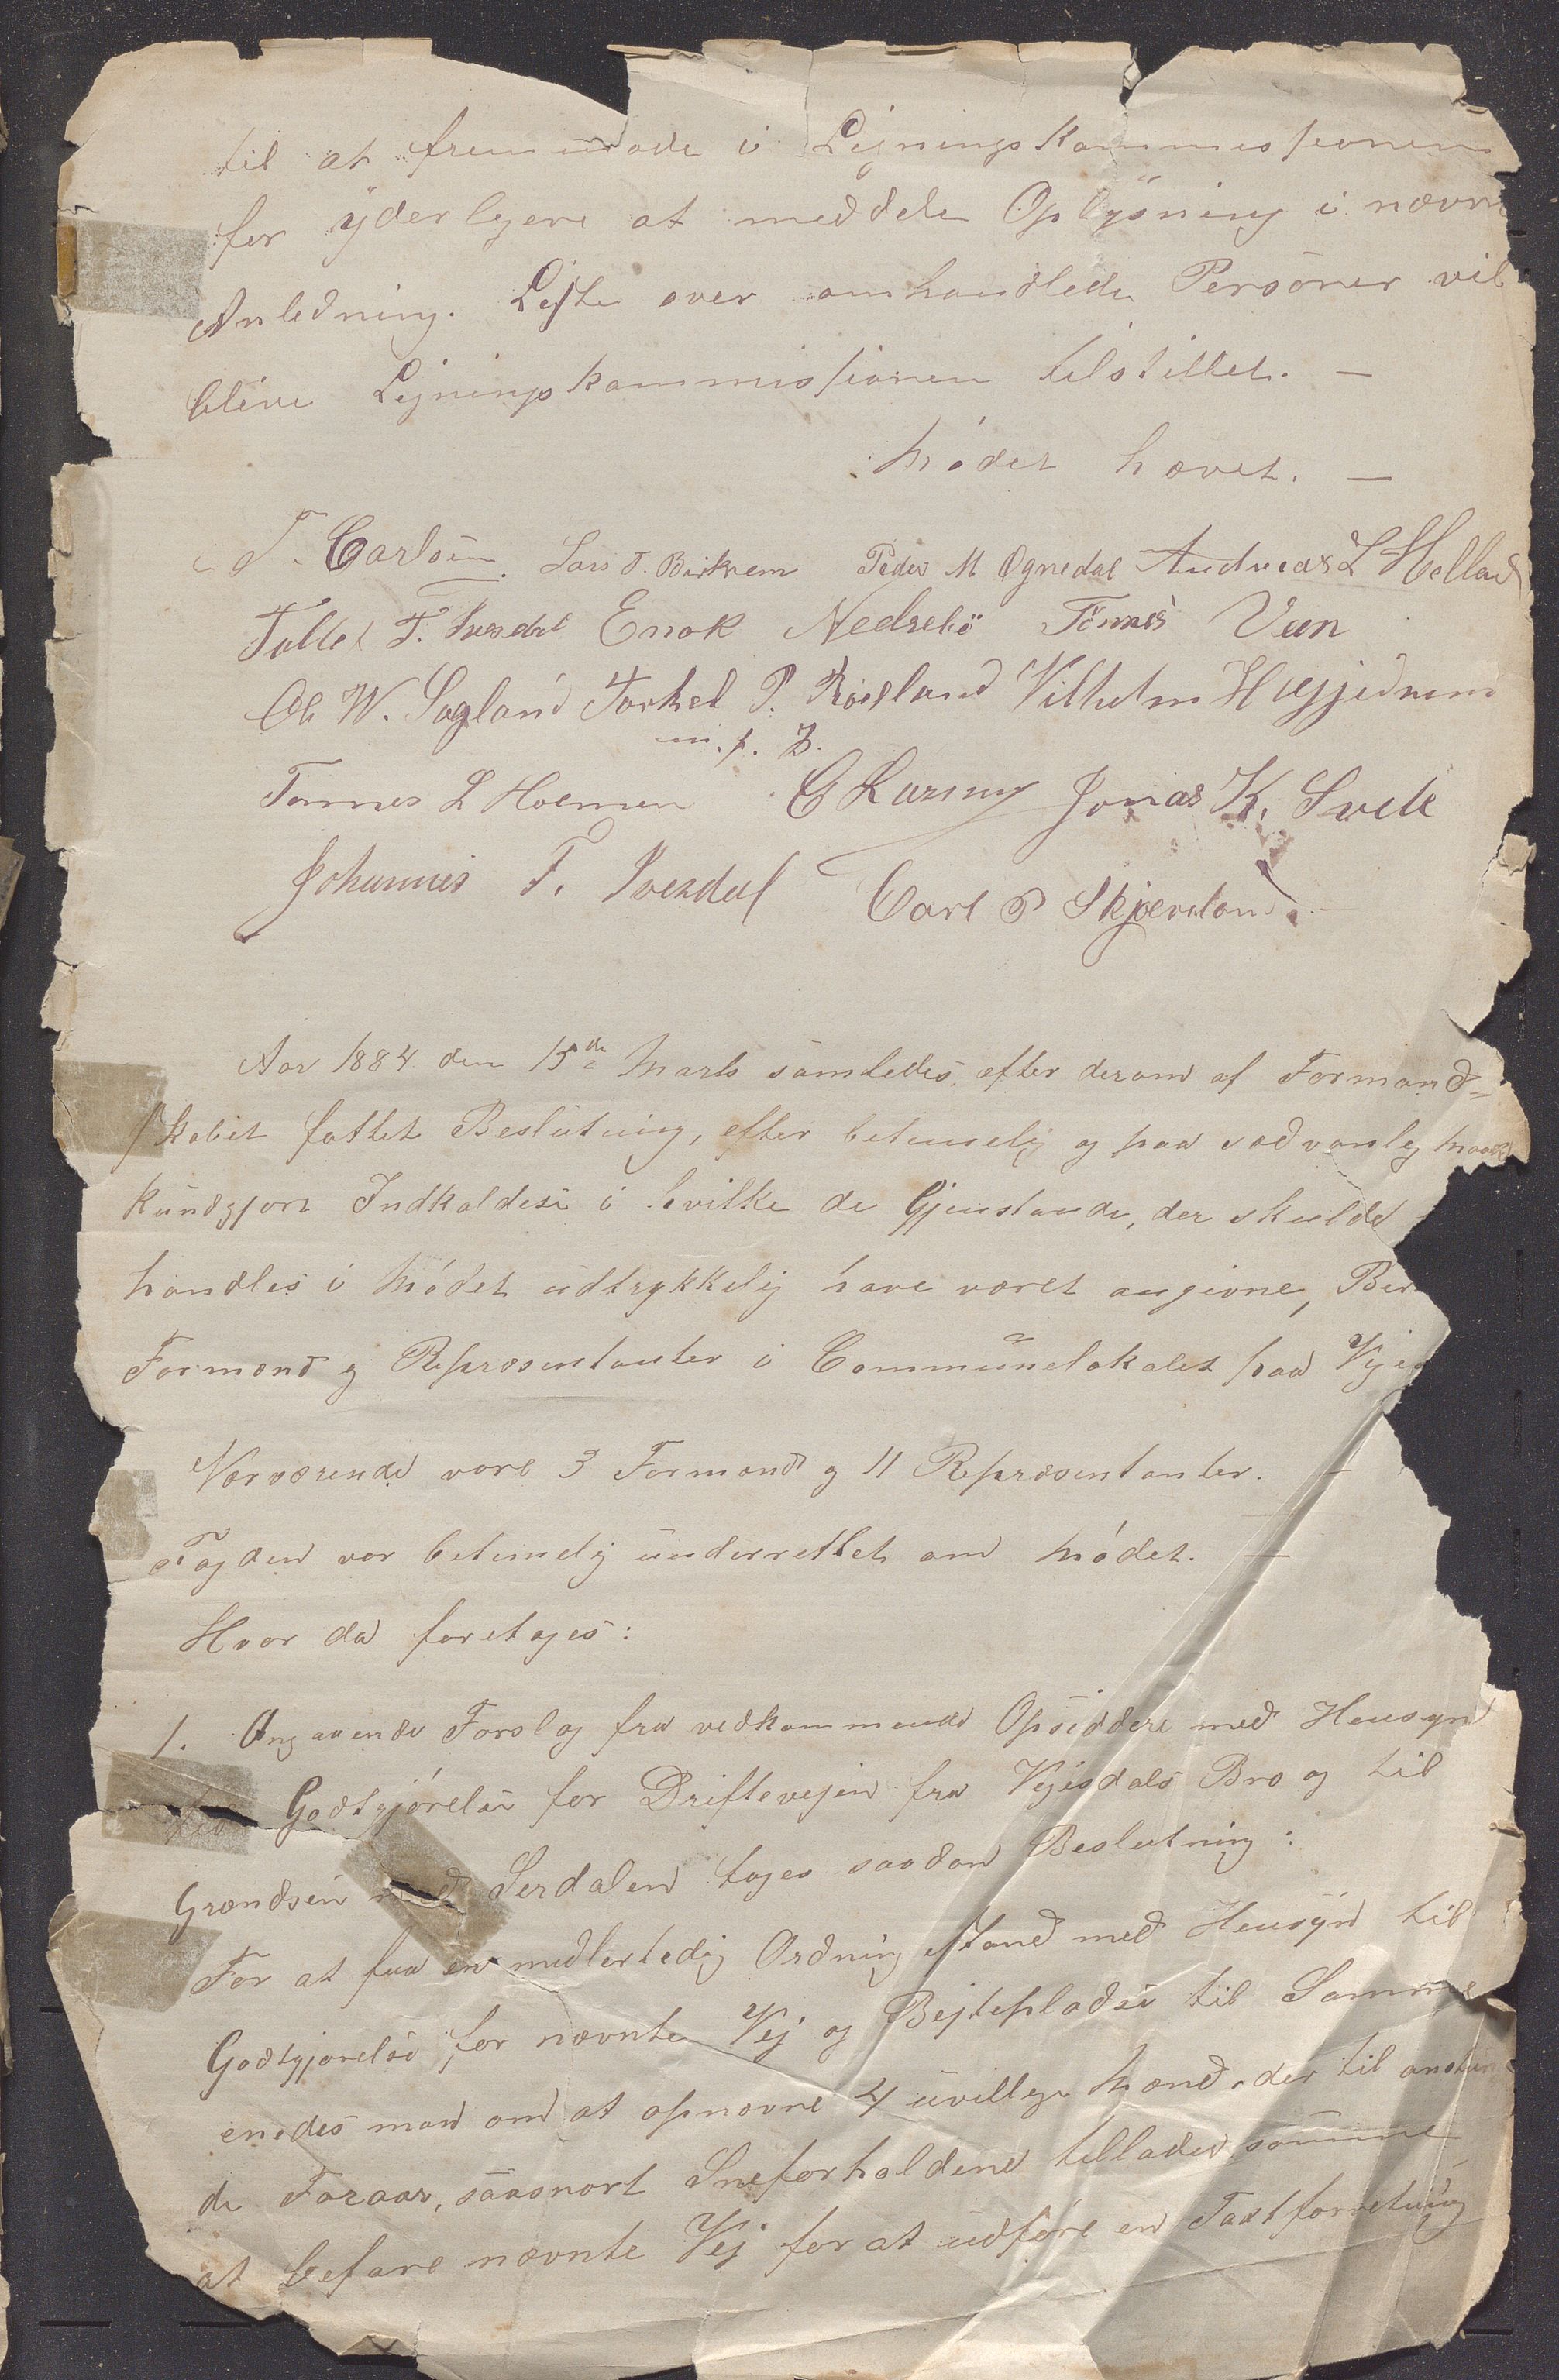 til at fremmøde i Ligningskommissionen
for yderligere at meddele Oplysning i nævnte
Anledning. Liste over omhandlede Personer vil
blive Ligningskommissionen tilstillet. —
Mödet hævet. —
T. Carlsen. Lars T. Birkrem Peder M Ognedal Andreas L Helland
Tollef T. Ivesdal Enok Nedrebö Tönnes Veen
Ole W. Sagland Torkel P. Röisland Vilhelm H
m. p. P.
Tonnes L Holmen Jonas K. Svele
Johannes T. Ivesdal Carl P Skjæveland.
Aar 1884 den 15de Marts samledes, efter derom af Formand=
skabet fattet Beslutning, efter betimelig og paa sædvanlig Maade
kundgjort Indkaldese i hvilke de Gjenstande, der skulde
handles i Mödet udtrykkelig have været angivne,
Formænd og Repræsentanter i Communelokalet paa
Nærværende vare 3 Formænd og 11 Repræsentanter. —
Fogden var betimelig underrettet om Mödet. —
Hvor da foretoges:
1. Angaaende Forslag fra vedkommende Opsiddere med Hensyn
til Godtgjörelse for Driftevejen fra Vejesdals Bro og til
Grændsen med Serdalen toges saadan Beslutning:
For at faa en midlertidig Ordning istand med Hensyn til
Godtgjorelse for nævnte Vej og Bejtepladse til Samme
enedes man om at opnævne 4 uvillige Mænd der til
de Foraar, saasnart Sneforholdene tillader samme
at befare nævnte Vej for at udföre en Taxtforretning